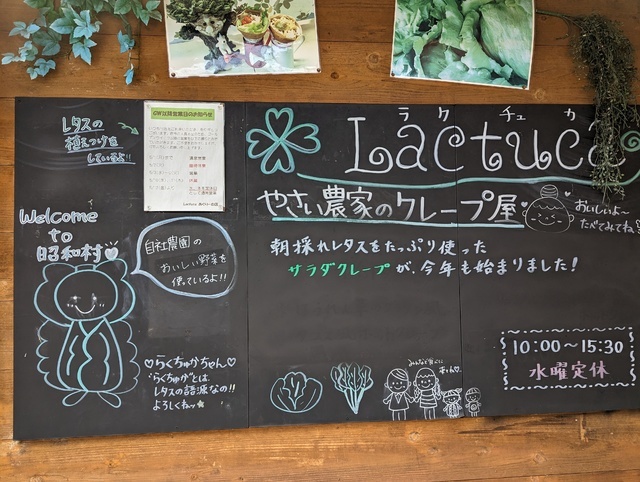 レタスの
植えつけを
しているよ!!
GW以降営業日のお知らせ
ラクチュカ
Lactuca
やさい農家のクレープ屋
おいしいよ〜
たべてみてね
Welcome
to
昭和村♥
自社農園の
おいしい野菜を
使っているよ!!
朝採れレタスをたっぷり使った
サラダクレープが、今年も始まりました!
10:00〜15:30
水曜定休
♡らくちゅかちゃん♡
"らくちゅか"とは、
レタスの語源なの!!
よろしくねっ★